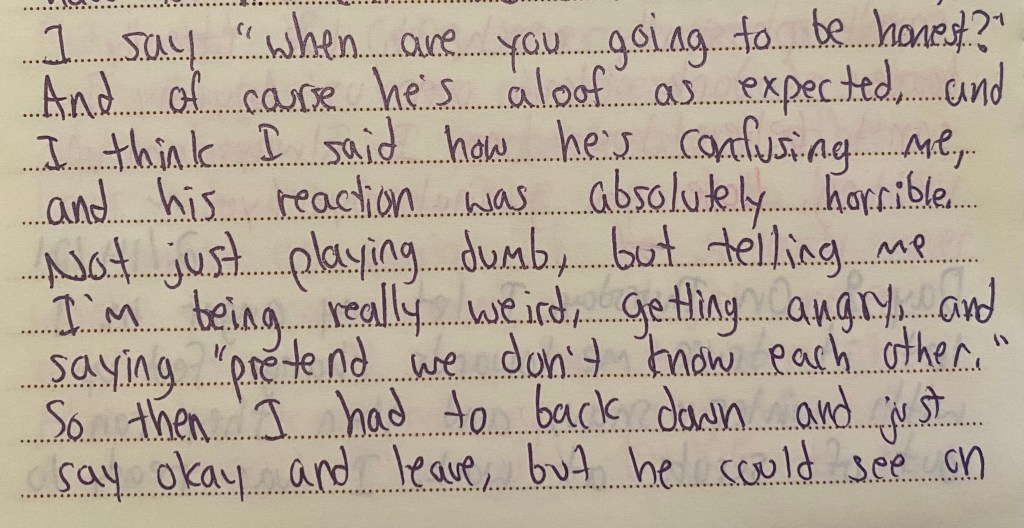 I say "when are you going to be honest?"
And of course he's aloof as expected, and
I think I said how he's confusing me,
and his reaction was absolutely horrible.
Not just playing dumb, but telling me
I'm being really weird, getting angry, and
saying "pretend we don't know each other."
So then I had to back down and just
say okay and leave, but he could see on